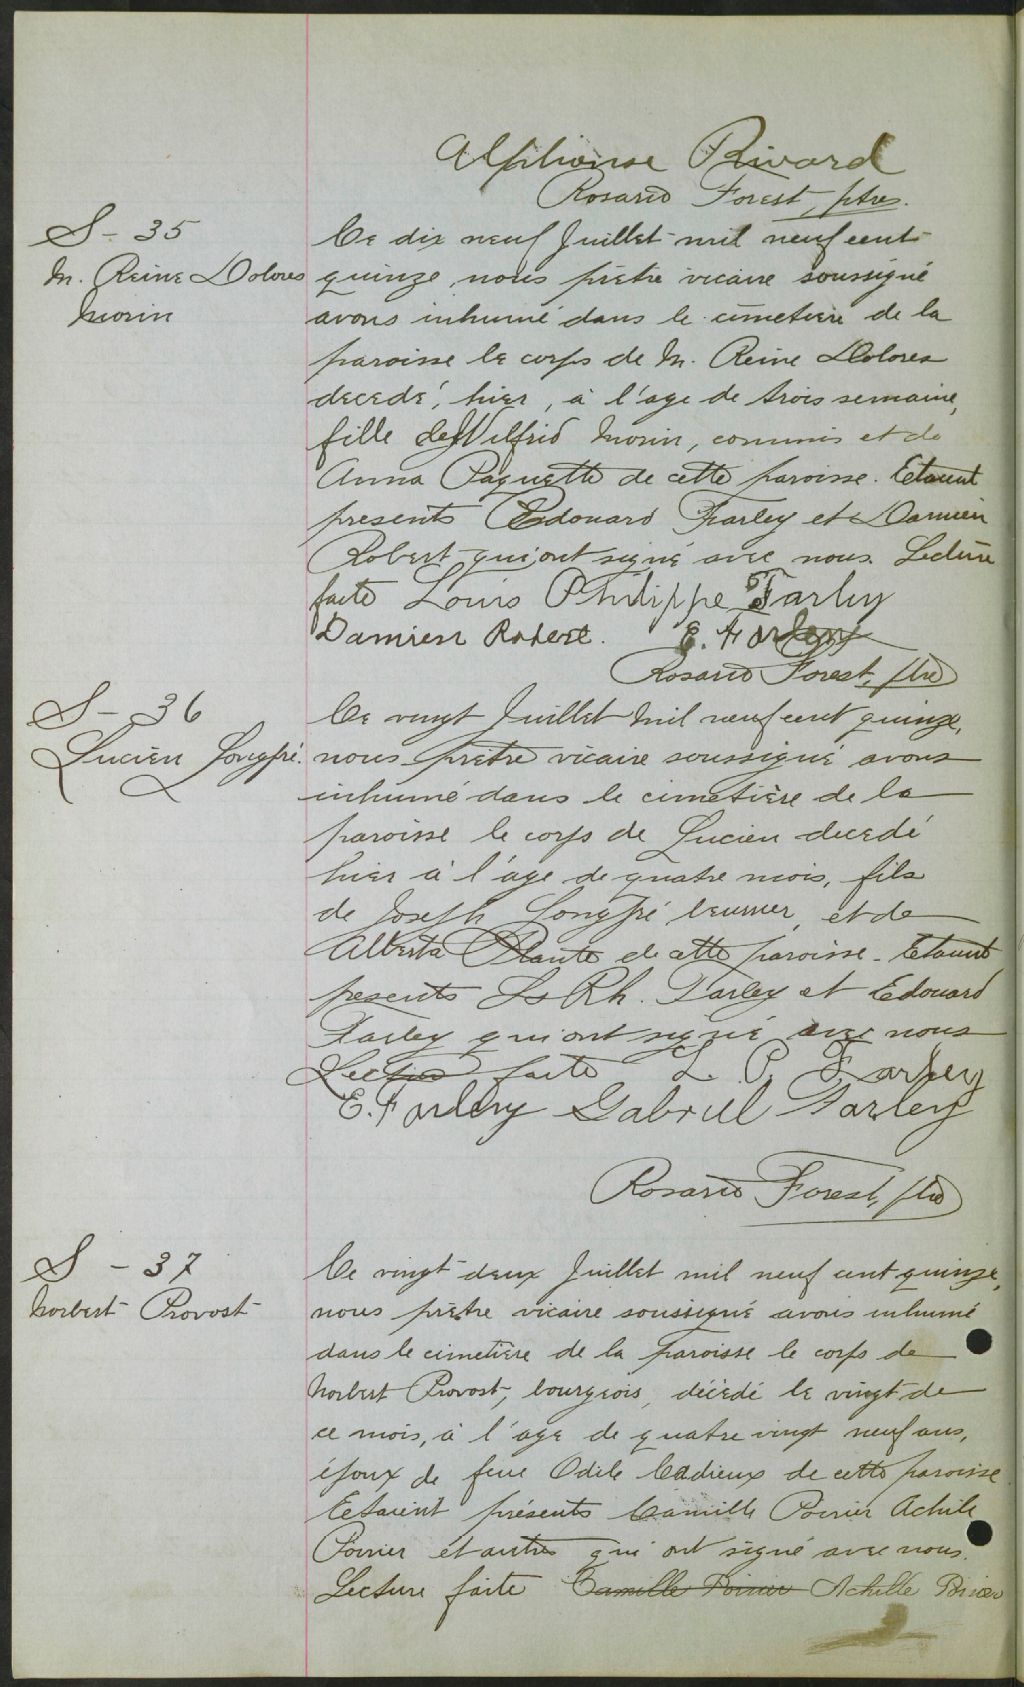 Alphonse Rivard
Rosario Forest, ptre.
S - 35
M. Reine Dolores
Morin
Ce dix neuf Juillet mil neuf cent
quinze, nous prêtre vicaire soussigné
avons inhumé dans le cimetière de la
paroisse le corps de M. Reine Dolores
decedé, hier, à l'age de trois semaine,
fille de Wilfrid Morin, commis et de
Anna Paquette de cette paroisse. Etaient
presents Edouard Farley et Damien
Robert qui ont signé avec nous. Lecture
faite Louis Philippe Farley
Damien Robert. E. Farley
Rosario Forest, ptre
S - 36
Lucien Longpré.
Ce vingt Juillet mil neuf cent quinze,
nous prêtre vicaire soussigné avons
inhumé dans le cimetière de la
paroisse le corps de Lucien decedé
hier à l'age de quatre mois, fils
de Joseph Longpré et de
Alberta Plante de cette paroisse - Etaient
presents Ls Ph. Farley et Edouard
Farley qui ont signé avec nous
Lecture faite L. P. Farley
E. Farley Gabriel Farley
Rosario Forest, ptre
S - 37
Norbert Provost
Ce vingt-deux Juillet mil neuf cent quinze,
nous prêtre vicaire soussigné avons inhumé
dans le cimetière de la paroisse le corps de
Norbert Provost, bourgeois, décédé le vingt de
ce mois, à l'age de quatre vingt neuf ans,
époux de feue Odile Cadieux de cette paroisse
Etaient présents Camille Poirier Achile
Poirier et autres qui ont signé avec nous.
Lecture faite Camille Poirier Achille Poirier